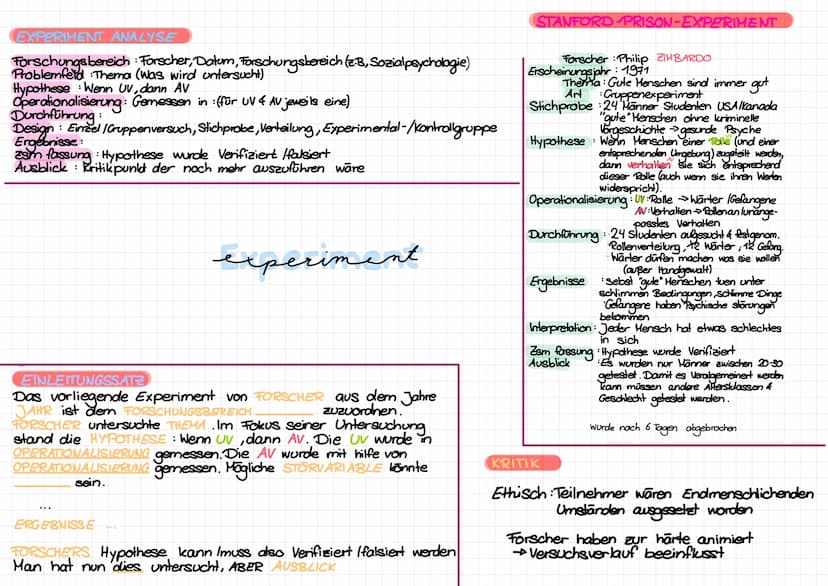 EXPERIMENT ANALYSE
Forschungsbereich : Forscher, Datum, Forschungsbereich (z.B, Sozialpsychologie)
Problemfeld : Thema (Was wird untersucht)
Hypothese : Wenn UV, dann AV
Operationalisierung : Gemessen in : (für UV & AV jeweils eine)
Durchführung :
Design : Einzel / Gruppenversuch, Stichprobe, Verteilung, Experimental-/Kontrollgruppe
Ergebnisse :
zsm fassung : Hypothese wurde Verifiziert / falsiert
Ausblick : Kritikpunkt der noch mehr auszuführen wäre
Experiment
experiment
EINLEITUNGSSATZ
Das vorliegende Experiment von FORSCHER aus dem Jahre
JAHR ist dem FORSCHUNGSBEREICH ________ zuzuordnen.
FORSCHER untersuchte THEMA . Im Fokus seiner Untersuchung
stand die HYPOTHESE : Wenn UV , dann AV. Die UV wurde in
OPERATIONALISIERUNG gemessen. Die AV wurde mit hilfe von
OPERATIONALISIERUNG gemessen. Mögliche STÖRVARIABLE könnte
________ sein.
...
ERGEBNISSE ...
FORSCHERS Hypothese kann / muss also Verifiziert / falsiert werden
Man hat nun dies untersucht, ABER AUSBLICK
STANFORD-PRISON-EXPERIMENT
Forscher : Philip ZIMBARDO
Erscheinungsjahr : 1971
Thema : Gute Menschen sind immer gut
Art : Gruppenexperiment
Stichprobe : 24 Männer Studenten USA/Kanada
"gute" Menschen ohne kriminelle
Vorgeschichte → gesunde Psyche
Hypothese : Wenn Menschen einer Rolle (und einer
entsprechenden Umgebung) zugeteilt werden,
dann verhalten sie sich entsprechend
dieser Rolle (auch wenn sie ihren Werten
widerspricht).
Operationalisierung : UV: Rolle → Wärter / Gefangene
AV: Verhalten → Rollen an / unange-
passtes Verhalten
Durchführung : 24 Studenten aufgesucht & festgenom.
Rollenverteilung, 12 Wärter, 12 Gefang.
Wärter dürfen machen was sie wollen
(außer Handgewalt)
Ergebnisse : Selbst "gute" Menschen tuen unter
schlimmen Bedingungen, schlimme Dinge
Gefangene haben Psychische störungen
bekommen
Interpretation : Jeder Mensch hat etwas schlechtes
in sich
Zsm fassung : Hypothese wurde Verifiziert
Ausblick : Es wurden nur Männer zwischen 20-30
getestet. Damit es Veralgemeinert werden
kann müssen andere Altersklassen &
Geschlecht getestet werden.
Wurde nach 6 Tagen abgebrochen
KRITIK
Ethisch : Teilnehmer wären Endmenschlichenden
Umständen ausgesetzt worden
Forscher haben zur härte animiert
→ Versuchsverlauf beeinflusst